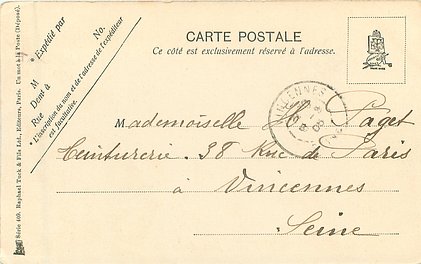 CARTE POSTALE
Ce côté est exclusivement réservé à l'adresse.
* Expédié par
No.
M
Demt à
Rue
* L'inscription du nom et de l'adresse de l'expéditeur
est facultative.
Série 469. Raphael Tuck & Fils Ltd., Editeurs, Paris. Un mot à la Poste (Déposé).
VINCENNES
Mademoiselle M. Paget
Teinturerie. 38 Rue de Paris
à Vincennes
Seine